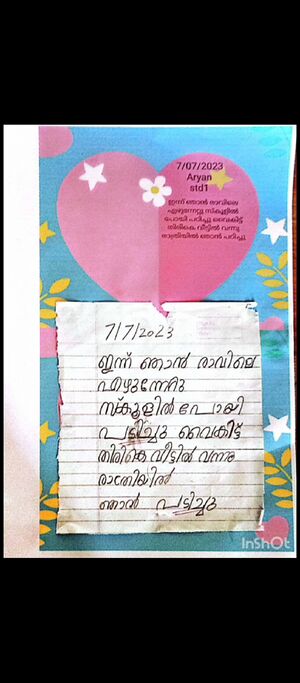 7/07/2023
Aryan
std1
ഇന്ന് ഞാൻ രാവിലെ
എഴുന്നേറ്റു സ്കൂളിൽ
പോയി പഠിച്ചു വൈകിട്ട്
തിരികെ വീട്ടിൽ വന്നു
രാത്രിയിൽ ഞാൻ പഠിച്ചു
7/7/2023
ഇന്ന് ഞാൻ രാവിലെ
എഴുന്നേറ്റു
സ്കൂളിൽ പോയി
പഠിച്ചു വൈകിട്ട്
തിരികെ വീട്ടിൽ വന്നു
രാത്രിയിൽ
ഞാൻ പഠിച്ചു
InShOt